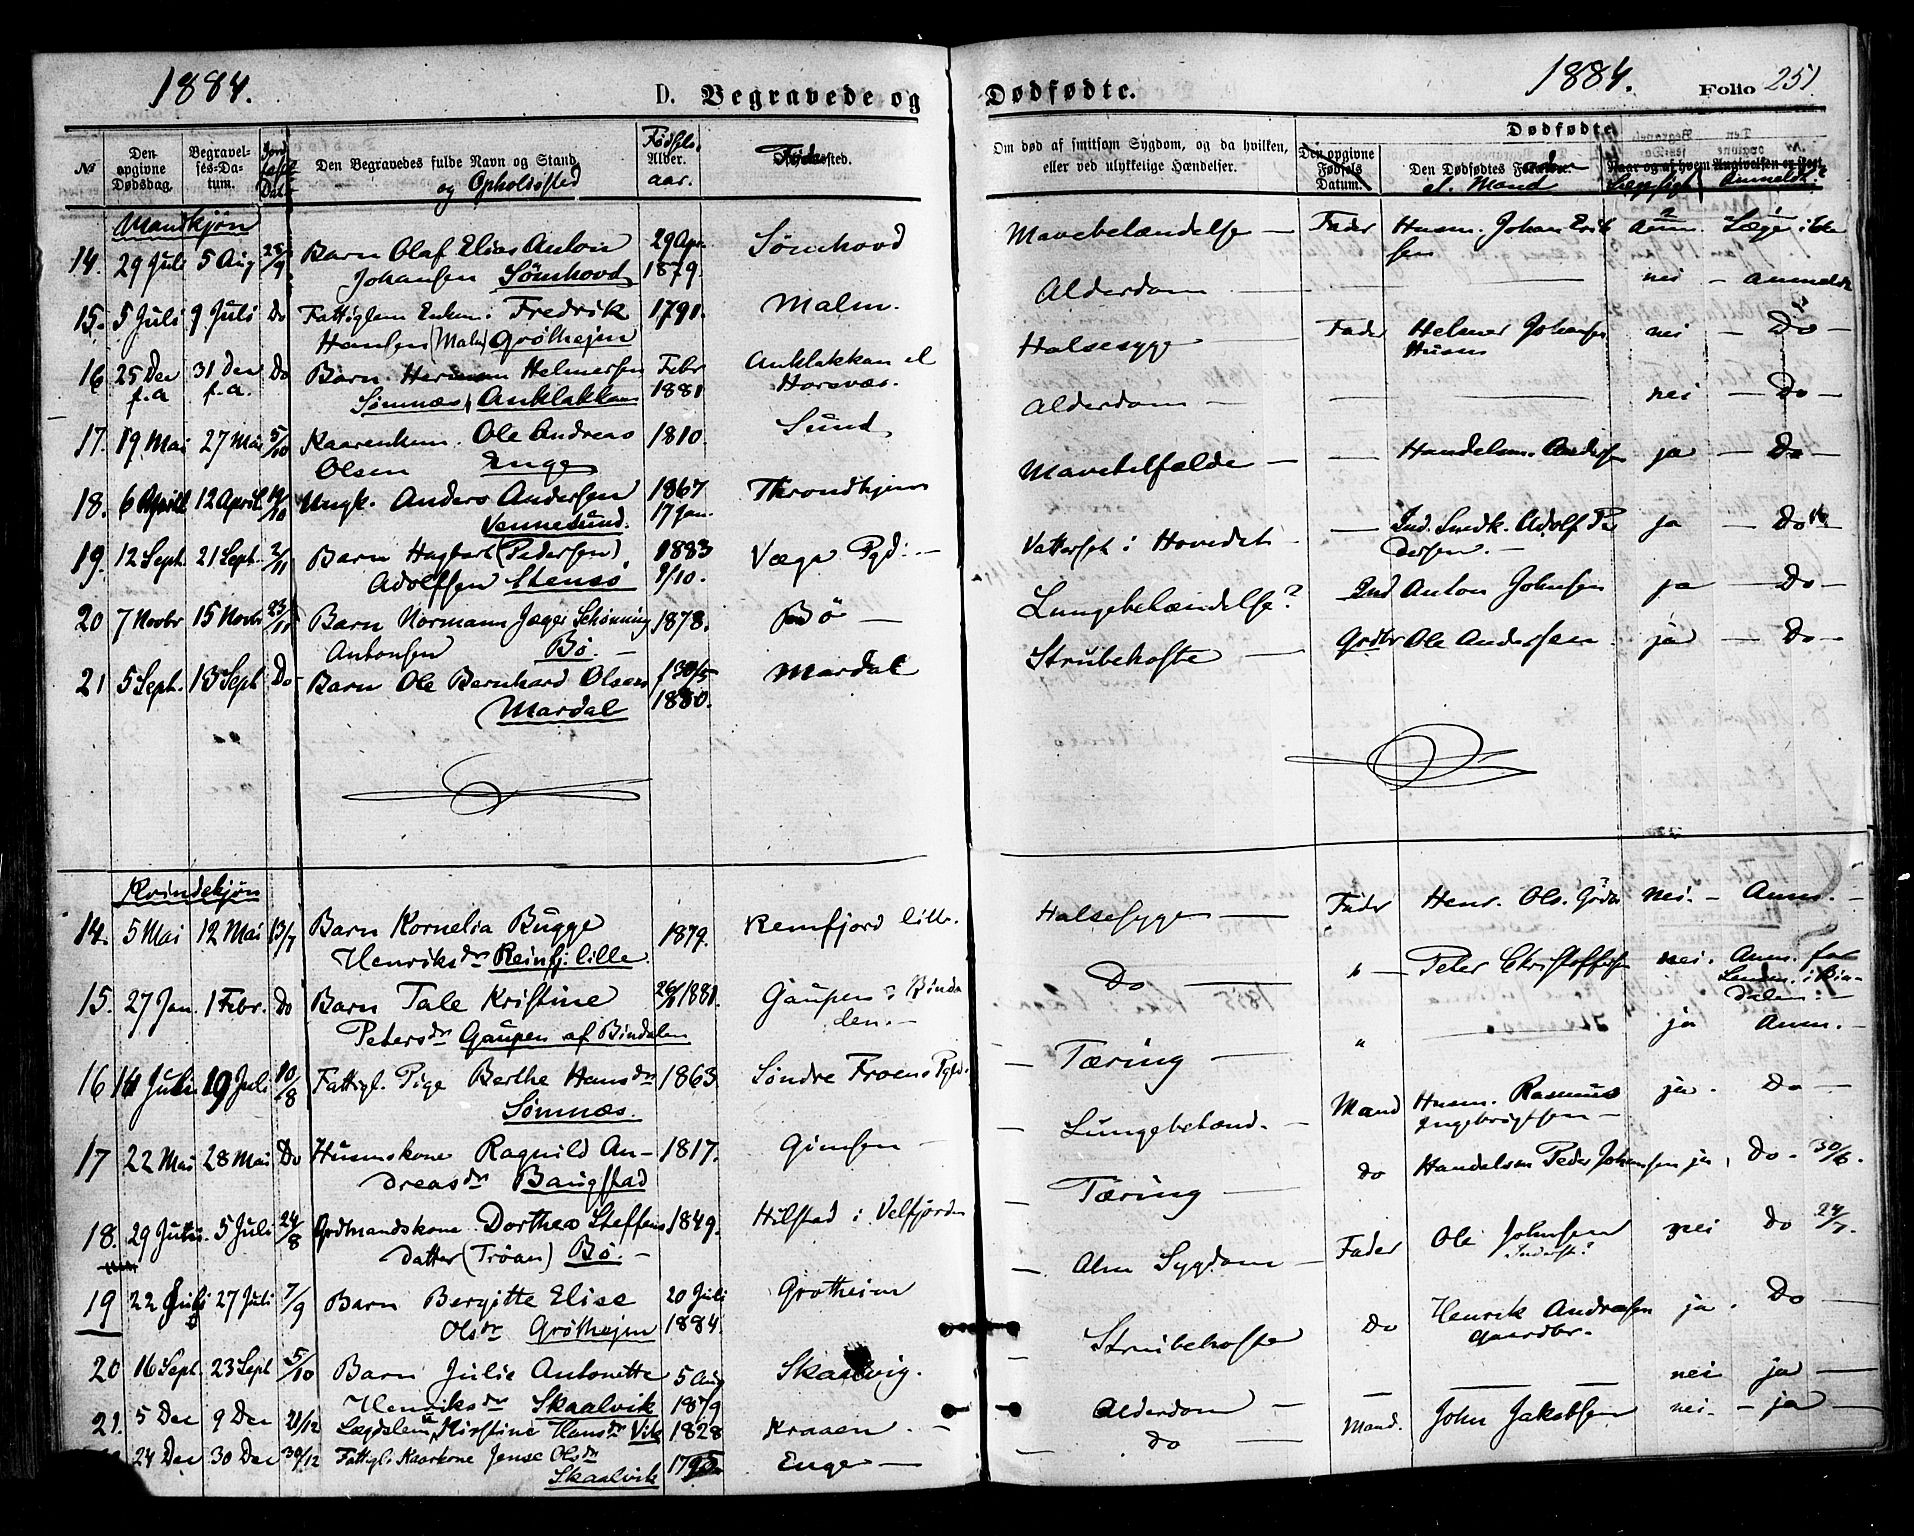 1884.
D. Begravede og
Dødfødte.
1884.
Folio 251
№
Den opgivne Dødsdag.
Begravelses-Datum.
Jordfæst. Dat.
Den Begravedes fulde Navn og Stand
og Opholdssted
Fødsels
Alver.
aar.
Føde sted.
Om død af smitsom Sygdom, og da hvilken,
eller ved ulykkelige Hændelser.
Den opgivne Fødsels Datum.
Dødfødte.
Den Dødfødtes
el. Mand
Naar og af hvem Angivelsen er skeet
Anmeldt?
Mandkjøn
14. 29 Juli 5 Aug 28/9 Barn Olaf Elias Anton 29 Apr. Sømhovd Mavebetændelse — Fader Husm. Johan Erik Læge ikke
Johansen Sømhovd 1879. sen
15. 5 Juli 9 Juli Do Fattiglem Enkem: Fredrik 1791. Malm. Alderdom — nei — anmeldt
Hansen (Malm) Grötheim
16 25 Dec 31 Dec Do Barn Herman Helmersen Febr Anklakkan el Halsesyge Fader Helmer Johansen nei — Do —
f.a f.a. Sømnæs Anklakkan 1881 Horsvær. Husm
17. 19 Mai 27 Mai 5/10 Kaarenkem. Ole Andreas 1810. Sund Alderdom — nei — Do —
Olsen Enge
18. 6 April 12 April 19/10 Ungk. Anders Andersen 1867 Throndhjem Mavetilfælde — — Handelsm. Andersen ja — Do —
Vennesund. 17 Jan.
19. 12 Sept 21 Sept. 2/11 Barn Hagbart (Pedersen) 1883 Væga Pgd. — Vattersot i Hovedet — — Ind. Smdk. Adolf Pe ja — Do
Adolfsen Stensö 9/10. dersen. —
20 7 Novbr 15 Novbr 23/11 Barn Normann Jæger Schönning 1878. Bö — Lungebetændelse? Ind Anton Johnsen ja — Do —
Antonsen Bö. —
21 5 Sept. 13 Sept Do Barn Ole Bernhard Olsen f 30/5 Mardal Strubehoste — Grdbr Ole Andersen ja — Do —
Mardal 1880.
Kvindekjøn
14. 5 Mai 12 Mai 13/7 Barn Kornelia Bugge 1879. Remfjord lille. Halsesyge — Fader Henr. Ols. nei. — Anm. —
Henriksdr Reinfj. lille.
15. 27 Jan. 1 Febr. Do Barn Tale Kristine 1881. Gaupen i Binda Do — " — Peter Christoffers nei. Anm.
Petersdr Gaupen af Bindalen den. — dalen. —
16 14 Juli 19 Juli 10/8 Fattigl. Pige Berthe Hansdr 1863. Söndre Froens Pgd. — Tæring — " ja Anm. —
Sömnæs.
17 22 Mai 28 Mai Do Husmskone Ragnild An- 1817. Gimsen — Lungebetænd. — Mand Husm. Rasmus ja. Do —
dreasdr Bangstad Ingebrigtsen —
18. 29 Juni 5 Juli 24/8 Grdmandskone Dorthea Steffens 1849. Hilstad i Velfjorden — Tæring — Do Handelsm Peder Johansen ja. Do. 30/6.
datter (Tröan) Bö. —
19 22 Juli 27 Juli 7/9 Barn Bergitte Elise 20 Juli Grötheim — Alm Sygdom — Fader Ole Johnsen nei Do 24/7.
Olsdr Grötheim 1884. Inderst?
20 16 Sept. 23 Sept 5/10 Barn Julie Antonette 5 Aug Skaalvig. — Strubehoste Do Henrik Andreasen ja. Do —
Henriksdr Skaalvik 1879 Gaardbr.
21. 5 Dec 9 Dec 21/12 Lægdslem Kirstine Hansdr Vik 1828 Kraaen. — Alderdom — — nei ja —
24 Dec 30 Dec 30/12 Fattigl. Kaarkone Jense Olsdr Enge — Do Mand. John Jakobsen nei. — ja —
Skaalvik